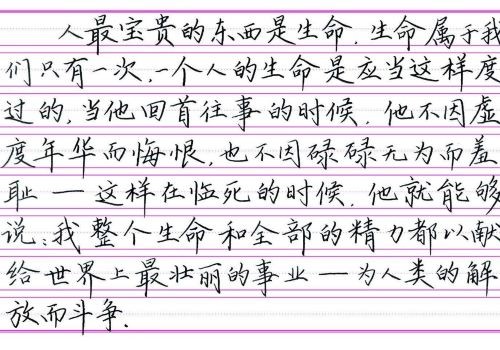 人最宝贵的东西是生命.生命属于我
们只有一次,一个人的生命是应当这样度
过的,当他回首往事的时候.他不因虚
度年华而悔恨,也不因碌碌无为而羞
耻—这样在临死的时候.他就能够
说:我整个生命和全部的精力都以献
给世界上最壮丽的事业—为人类的解
放而斗争.